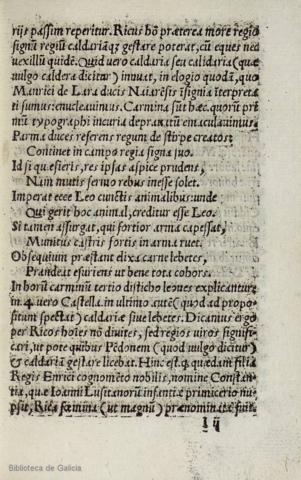 rijs passim reperitur. Ricus hō præterea more regio
signū regiū caldariāq; gestare poterat, cū eques nec
vexilliū quidē. Quid vero caldaria seu calidaria (quæ
vulgo caldera dicitur) innuat, in elogio quodā, quo
Mārici de Lara ducis Naiarēsis īsignia īterpretā
ti sumus: enucleauimus. Carmina sūt hæc. quorū pri
mū typographi incuria deprauatū emaculauimus.
Parma duces referens regum de stirpe creatos:
Continet in campo regia signa suo.
Id si quæsieris, res ipsas aspice prudens,
Nam mutis sermo rebus inesse solet.
Imperat ecce Leo cunctis animalibus: unde
Qui gerit hoc animal, creditur esse Leo.
Si tamen assurgat, qui fortior arma capessat,
Munitus castris fortis in arma ruet.
Obsequium præstant dixa carne lebetes,
Prandeat esuriens ut bene tota cohors.
In horū carminū tertio disticho leones explicantur
in .4. vero Castella. in ultimo autē (quod ad propo-
situm spectat) caldariæ siue lebetes. Dicamus ergo
per Ricos hoīes nō diuites, sed regios uiros signifi-
cari, ut pote quibus Pēdonem (quod vulgo dicitur)
& caldariā gestare licebat. Hinc est .q. quædam filia
Regis Enrici cognomēto nobilis, nomine Constan-
tia, quæ Ioanni Lusitanorū infantiæ primicerio nu-
psit, Rica fœmina (ut magnū) prænominatæ fuit
I ij
Biblioteca de Galicia